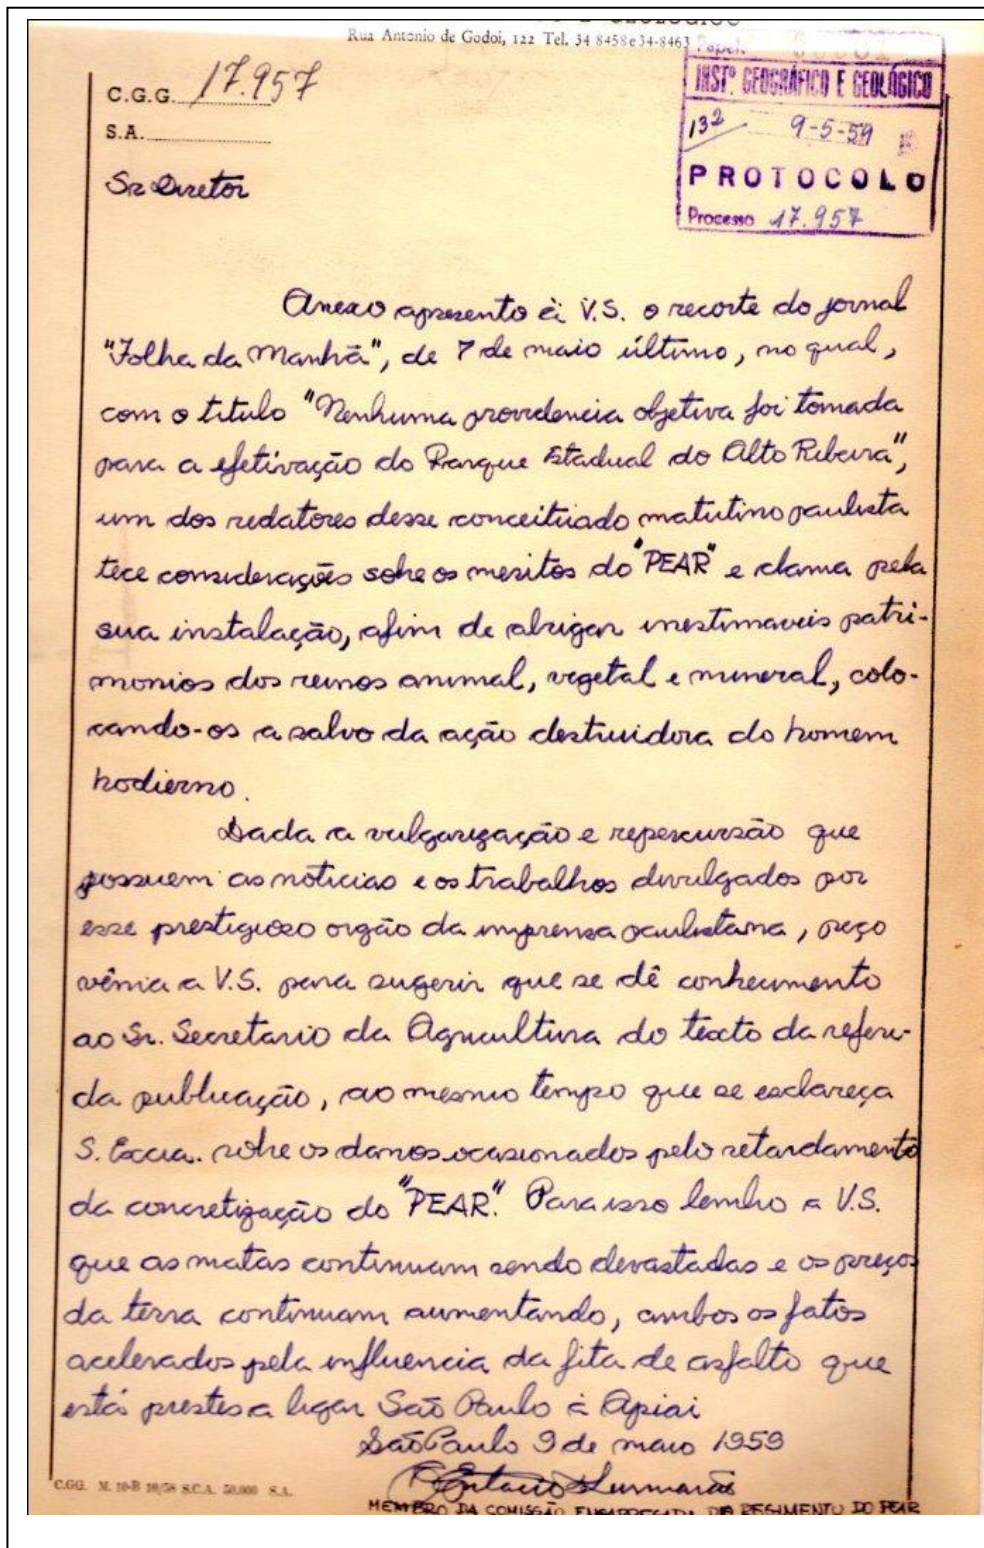 Rua Antonio de Godoi, 122 Tel. 34 8458 e 34-8463
Papel.
INSTº GEOGRÁFICO E GEOLÓGICO
132 9-5-59
PROTOCOLO
Processo 17.957
C.G.G. 17.957
S.A.
Sr Diretor
Anexo apresento à V.S. o recorte do jornal
"Folha da Manhã", de 7 de maio último, no qual,
com o titulo "Nenhuma providencia objetiva foi tomada
para a efetivação do Parque Estadual do Alto Ribeira",
um dos redatores desse conceituado matutino paulista
tece considerações sobre os meritos do "PEAR" e clama pela
sua instalação, afim de abrigar inestimaveis patri-
monios dos reinos animal, vegetal e mineral, colo-
cando-os a salvo da ação destruidora do homem
hodierno.
Dada a vulgarização e repercursão que
possuem as noticias e os trabalhos divulgados por
esse prestigioso orgão da imprensa paulistana, peço
vênia a V.S. para sugerir que se dê conhecimento
ao Sr. Secretario da Agricultura do texto da referi-
da publicação, ao mesmo tempo que se esclareça
S. Excia. sobre os danos ocasionados pelo retardamento
da concretização do "PEAR". Para isso lembro a V.S.
que as matas continuam sendo devastadas e os preços
da terra continuam aumentando, ambos os fatos
acelerados pela influencia da fita de asfalto que
está prestes a ligar São Paulo à Apiai
São Paulo 9 de maio 1959
MEMBRO DA COMISSÃO ENCARREGADA DO REGIMENTO DO PEAR
C.GG. M. 10-B 10/58 S.C.A. 50.000 S.A.